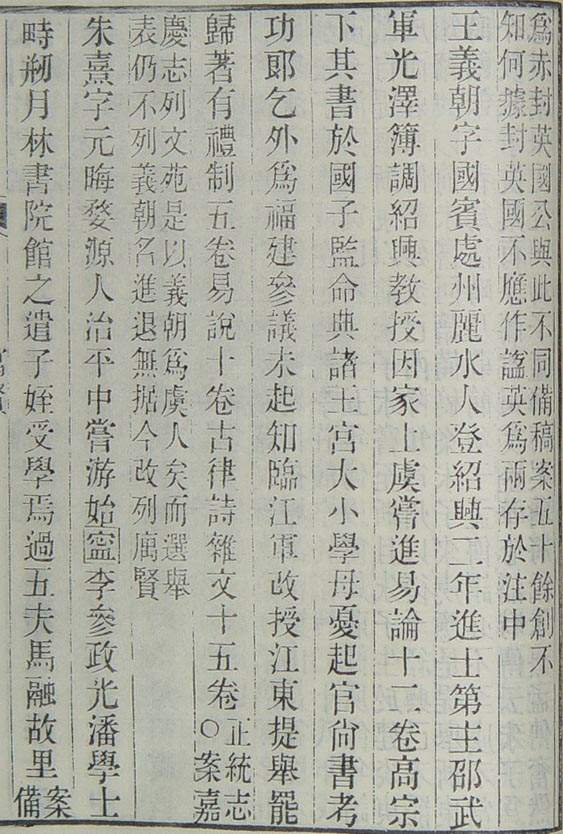 爲赤封英國公與此不同備稿案五十餘創不
知何據封英國不應作謚英爲兩存於注中
王義朝字國賓處州麗水人登紹興二年進士第主邵武
軍光澤簿調紹興教授因家上虞嘗進易論十二卷高宗
下其書於國子監命典諸王宮大小學母憂起官尙書考
功郎乞外爲福建參議未起知臨江軍改授江東提舉罷
歸著有禮制五卷易說十卷古律詩雜文十五卷〇正統志
案嘉
慶志列文苑是以義朝爲虞人矣而選舉
表仍不列義朝名進退無据今改列寓賢
朱熹字元晦婺源人治平中嘗游始寍李參政光潘學士
時剏月林書院館之遣子姪受學焉過五夫馬融故里案
備